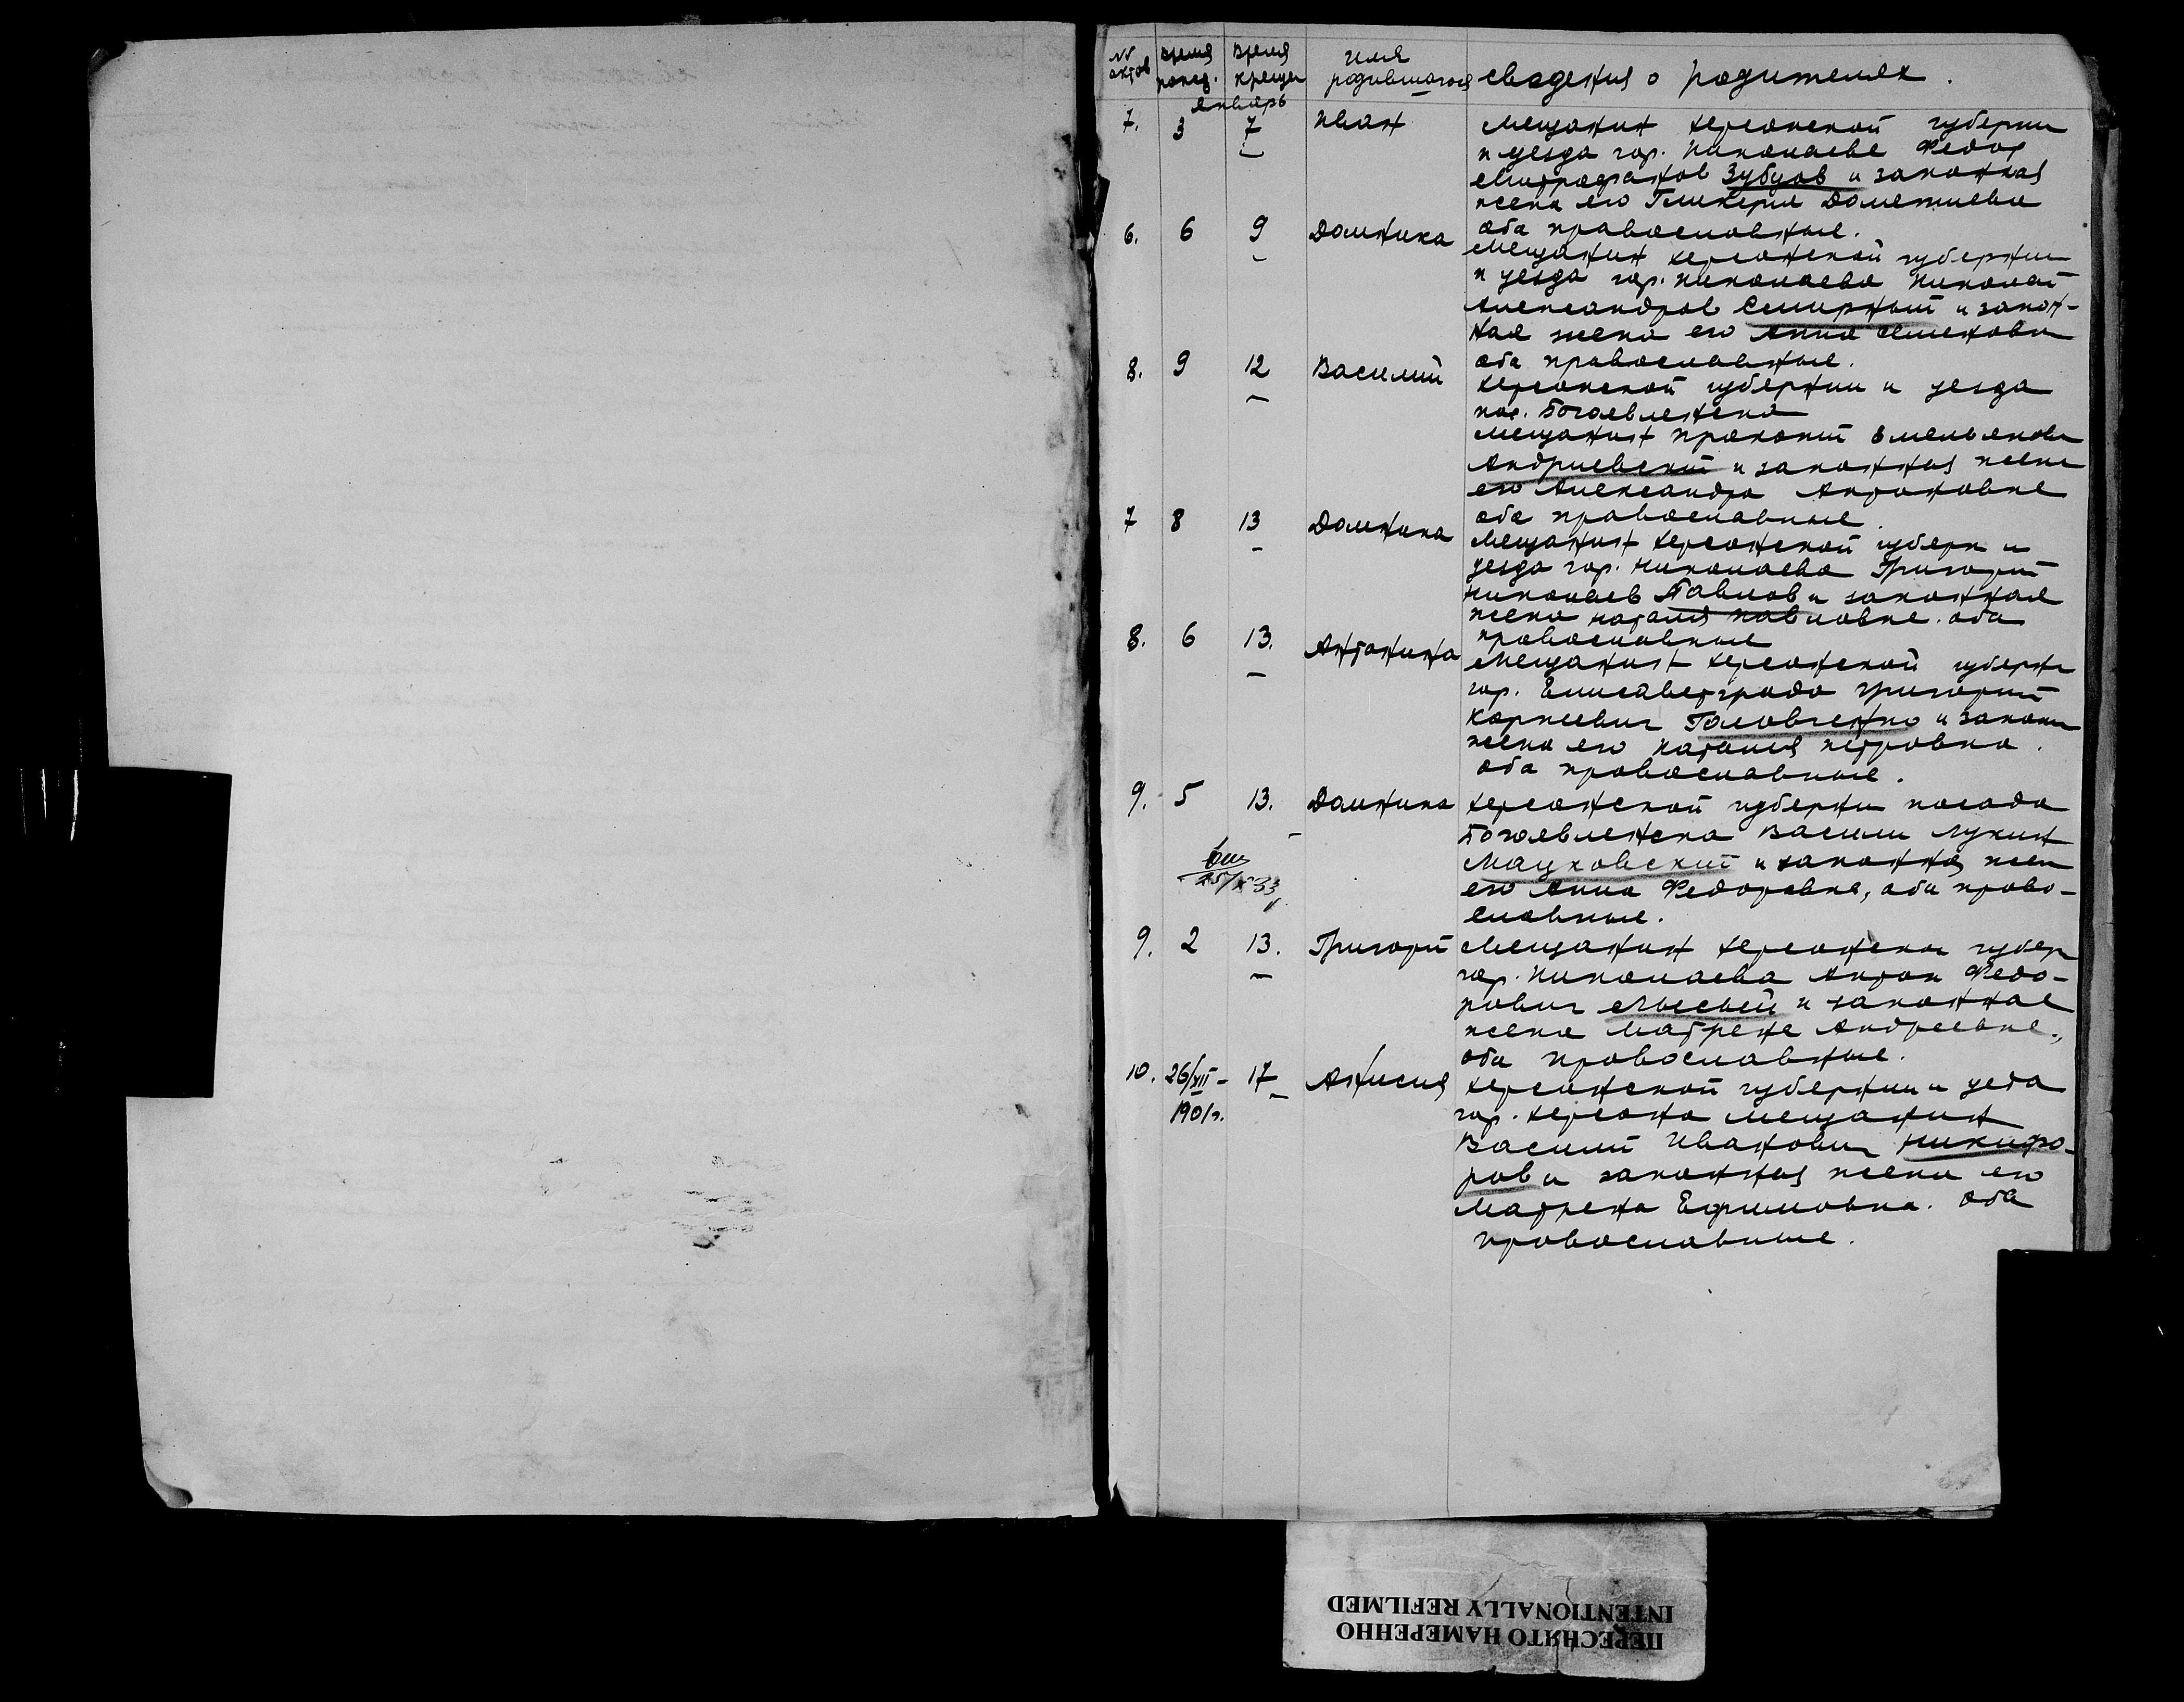 № актов | время рожд. | время крещен | имя родившагося | сведения о родителях.
январь
7. | 3 | 7 | Иван | мещанин херсонской губернии
и уезда гор. Николаева Федор
Митрофанов Зубцов и законная
жена его Гликерия Дометиева
оба православные.
6. | 6 | 9 | Домника | мещанин херсонской губернии
и уезда гор. Николаева Николай
Александров Смирный и закон-
ная жена его Анна Семенова
оба православные.
8. | 9 | 12 | Василий | херсонской губернии и уезда
пос. Богоявленска
мещанин Прокопий Емельянов
Андриевский и законная жена
его Александра Антоновна
оба православные.
7 | 8 | 13 | Домника | мещанин херсонской губерн и
уезда гор. Николаева Григорий
Николаев Павлов и законная
жена Наталия Павловна. оба
православные
8. | 6 | 13. | Антонина | мещанин херсонской губерни
гор. Елисаветграда Григорий
Корнеевич Головченко и законн
жена его Наталия Петровна.
оба православные.
9. | 5 | 13. | Домника | херсонской губернии посада
Богоявленска Василий Лукин
Мацковский и законная жен
его Анна Федоровна, оба право-
славные.
25/X 33
9. | 2 | 13. | Григорий | мещанин херсонской губер
гор. Николаева Антон Федо-
рович Лысый и законная
жена Матрена Андреевна,
оба православные.
10. | 26/XII - 1901 г. | 17 | Анисия | херсонской губернии и уезда
гор. Херсона мещанин
Василий Иванович Никифо-
ров и законная жена его
Матрена Ефимовна. оба
православные.
ПЕРЕСНЯТО НАМЕРЕННО
INTENTIONALLY REFILMED